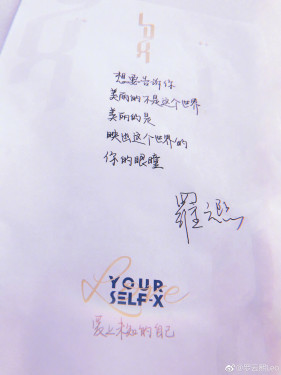 想要告诉你
美丽的不是这个世界
美丽的是
映出这个世界的
你的眼瞳
Love
YOUR
SELF·X
爱上未知的自己